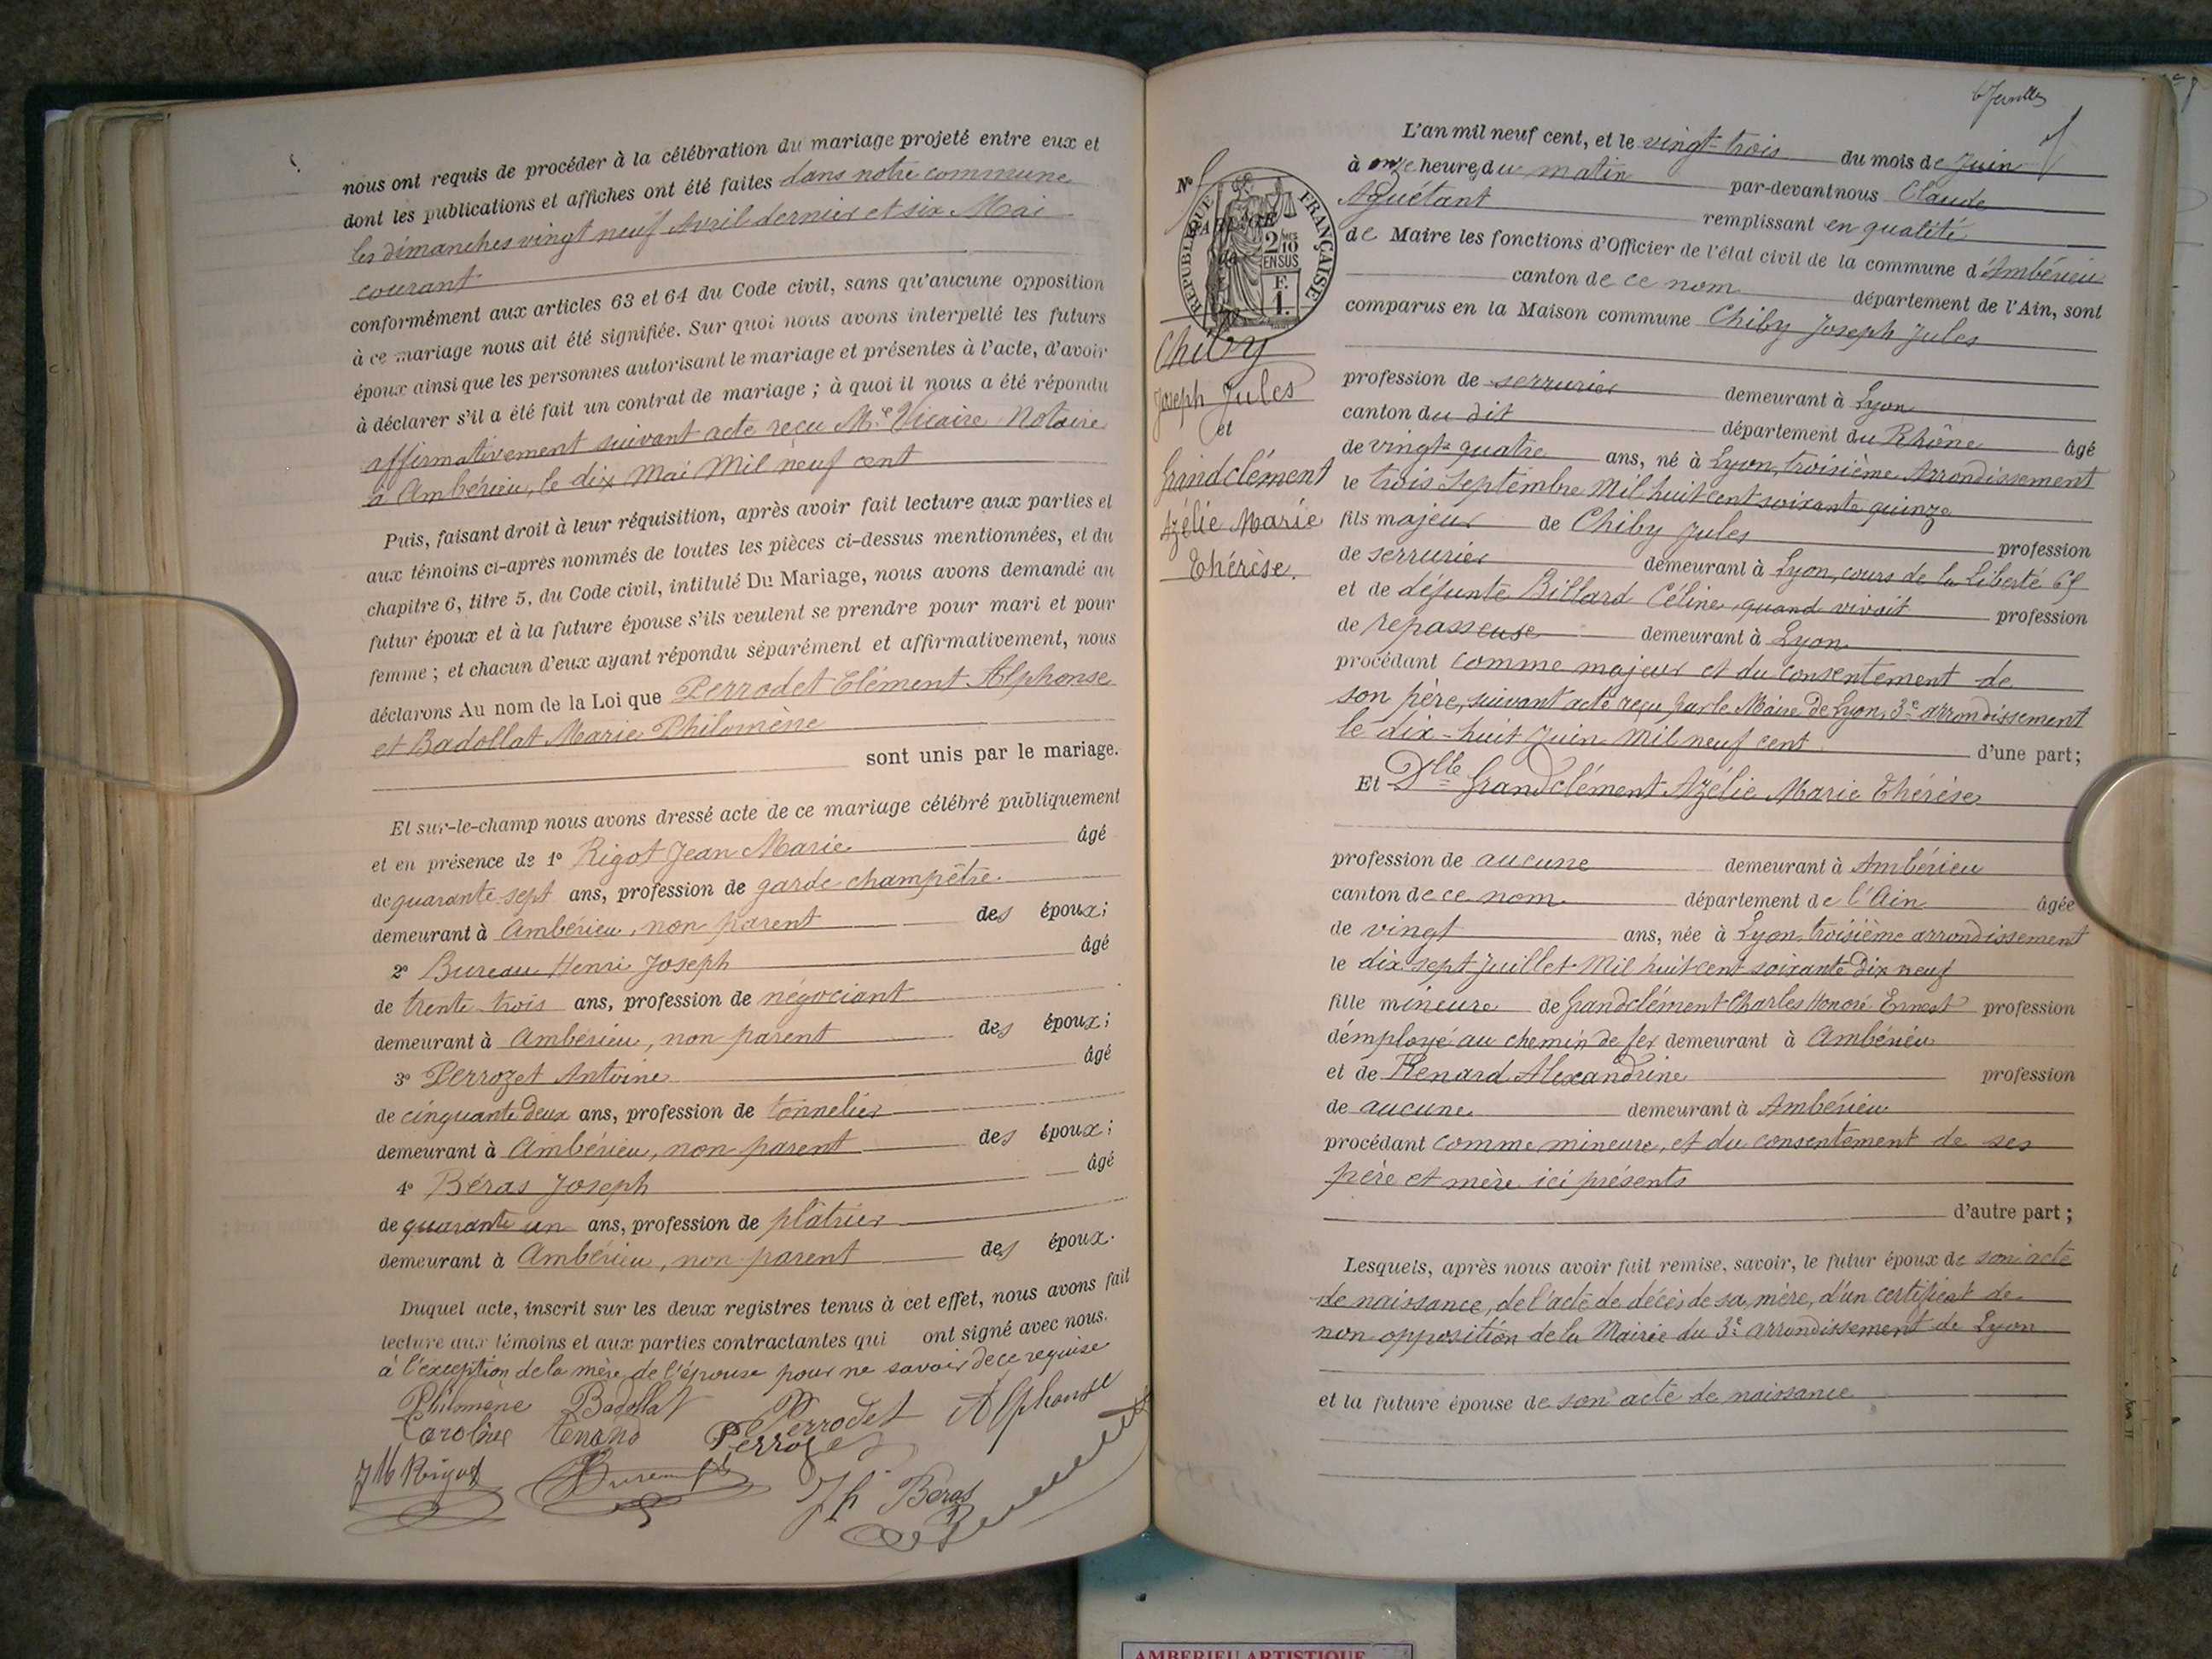 nous ont requis de procéder à la célébration du mariage projeté entre eux et
dont les publications et affiches ont été faites dans notre commune
les dimanches vingt neuf Avril dernier et six Mai
courant
conformément aux articles 63 et 64 du Code civil, sans qu'aucune opposition
à ce mariage nous ait été signifiée. Sur quoi nous avons interpellé les futurs
époux ainsi que les personnes autorisant le mariage et présentes à l'acte, d'avoir
à déclarer s'il a été fait un contrat de mariage ; à quoi il nous a été répondu
affirmativement suivant acte reçu Me Vicaire Notaire
à Ambérieu, le dix Mai Mil neuf cent
Puis, faisant droit à leur réquisition, après avoir fait lecture aux parties et
aux témoins ci-après nommés de toutes les pièces ci-dessus mentionnées, et du
chapitre 6, titre 5, du Code civil, intitulé Du Mariage, nous avons demandé au
futur époux et à la future épouse s'ils veulent se prendre pour mari et pour
femme ; et chacun d'eux ayant répondu séparément et affirmativement, nous
déclarons Au nom de la Loi que Perrodet Clément Alphonse
et Badollat Marie Philomène
sont unis par le mariage.
Et sur-le-champ nous avons dressé acte de ce mariage célébré publiquement
et en présence de 1° Rigot Jean Marie âgé
de quarante sept ans, profession de garde champêtre
demeurant à Ambérieu, non parent des époux ;
2° Bureau Henri Joseph âgé
de trente trois ans, profession de négociant
demeurant à Ambérieu, non parent des époux ;
3° Perrozet Antoine âgé
de cinquante deux ans, profession de tonnelier
demeurant à Ambérieu, non parent des époux ;
4° Béras Joseph âgé
de quarante un ans, profession de plâtrier
demeurant à Ambérieu, non parent des époux.
Duquel acte, inscrit sur les deux registres tenus à cet effet, nous avons fait
lecture aux témoins et aux parties contractantes qui ont signé avec nous.
à l'exception de la mère de l'épouse pour ne savoir de ce requise
Philomène Badollat Perrodet Alphonse
Caroline Perrozet
JM Rigot Bureau Jh Béras
L'an mil neuf cent, et le vingt-trois du mois de Juin
à onze heures du matin par-devant nous Claude
Aguétant remplissant en qualité
de Maire les fonctions d'Officier de l'état civil de la commune d'Ambérieu
canton de ce nom département de l'Ain, sont
comparus en la Maison commune Chiby Joseph Jules
profession de serrurier demeurant à Lyon
canton du dit département du Rhône âgé
de vingt-quatre ans, né à Lyon, troisième Arrondissement
le trois Septembre Mil huit cent soixante quinze
fils majeur de Chiby Jules profession
de serrurier demeurant à Lyon, cours de la Liberté
et de défunte Billard Céline, quand vivait profession
de repasseuse demeurant à Lyon
procédant comme majeur et du consentement de
son père, suivant acte reçu par le Maire de Lyon, 3e arrondissement
le dix-huit Juin Mil neuf cent d'une part ;
Et Dlle Grandclément Azélie Marie Thérèse
profession de aucune demeurant à Ambérieu
canton de ce nom département de l'Ain âgée
de vingt ans, née à Lyon, troisième arrondissement
le dix sept Juillet Mil huit cent soixante dix neuf
fille mineure de Grandclément Charles Honoré Ernest profession
d'employé au chemin de fer demeurant à Ambérieu
et de Renard Alexandrine profession
de aucune demeurant à Ambérieu
procédant comme mineure, et du consentement de ses
père et mère ici présents
d'autre part ;
Lesquels, après nous avoir fait remise, savoir, le futur époux de son acte
de naissance, de l'acte de décès de sa mère, d'un certificat de
non opposition de la Mairie du 3e arrondissement de Lyon
et la future épouse de son acte de naissance
N°
RÉPUBLIQUE FRANÇAISE
2/10 EN SUS
F.
1.
Chiby
Joseph Jules
et
Grandclément
Azélie Marie
Thérèse.
AMBERIEU ARTISTIQUE